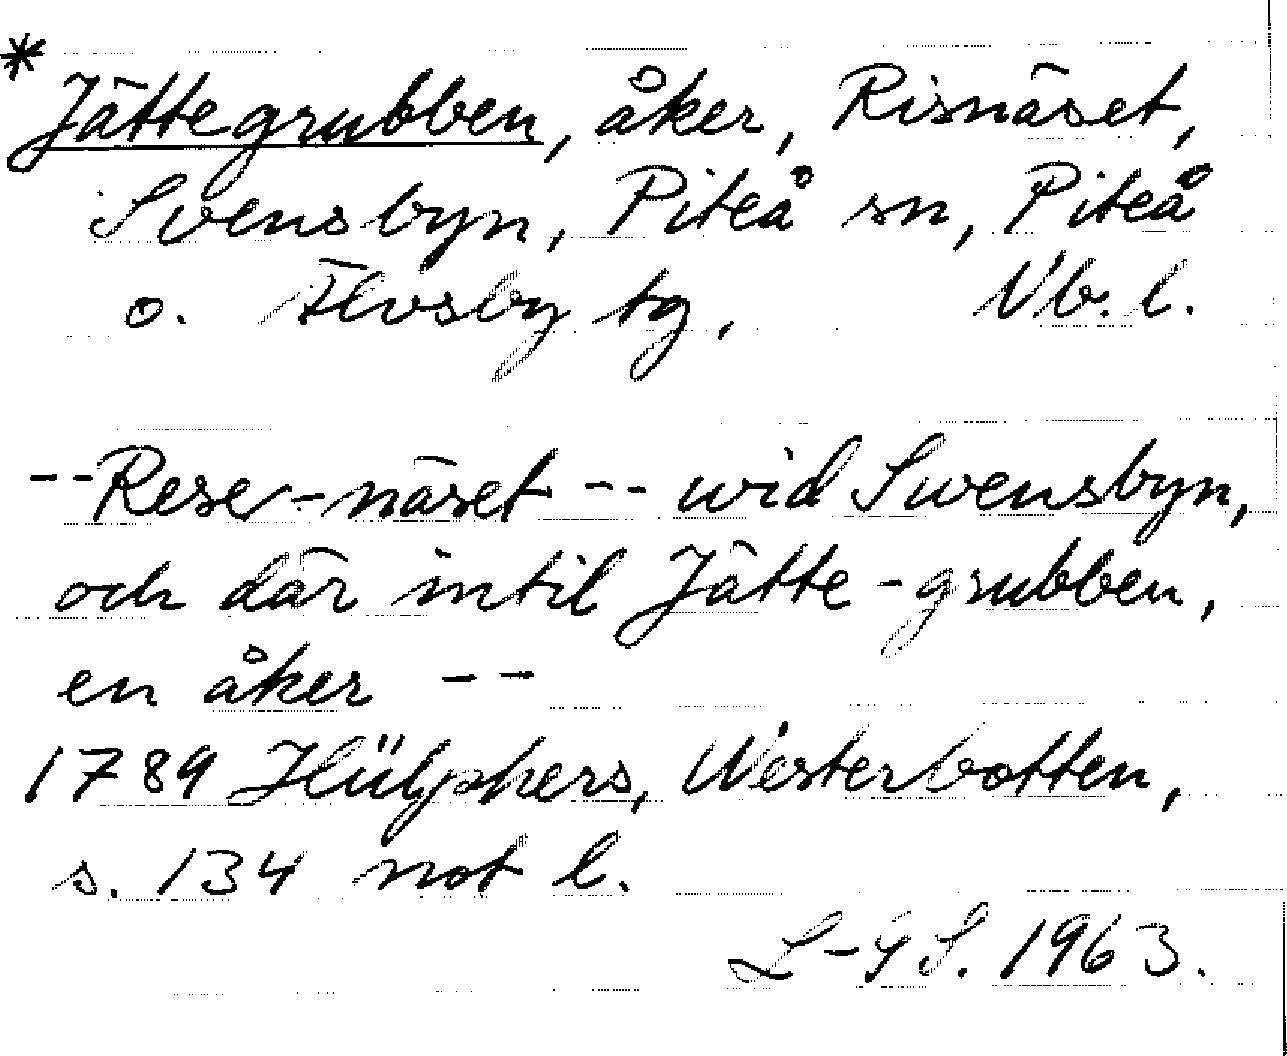 * Jättegrubben, åker, Risnäset,
Svensbyn, Piteå sn, Piteå
o. Älvsby tg, Vb. l.
-- Rese-näset -- wid Swensbyn,
och där intil Jätte-grubben,
en åker --
1789 Hülphers, Westerbotten,
s. 134 not l.
L-G S. 1963.